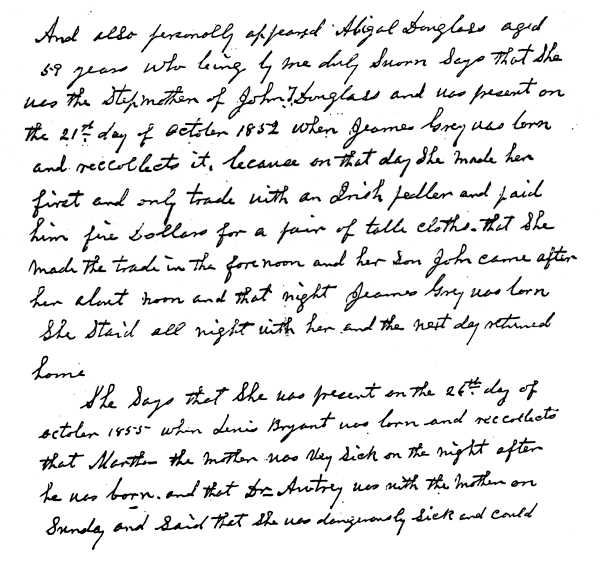 And also personally appeared Abigal Douglass aged
59 years who being by me duly Suorn Says that She
was the Stepmother of John T Douglass and was present on
the 21st day of October 1852 when Jeames Grey was born
and reccollects it, because on that day She made her
first and only trade with an Irish pedler and paid
him five Dollars for a pair of table cloths. that She
made the trade in the forenoon and her Son John came after
her about noon and that night Jeames Grey was born
She Staid all night with her and the next day returned
home
She Says that She was present on the 26th day of
October 1855 when Lewis Bryant was born and reccollects
that Martha the mother was Very Sick on the night after
he was born. and that Dr Autrey was with the mother on
Sunday and Said that She was dangerously Sick and could